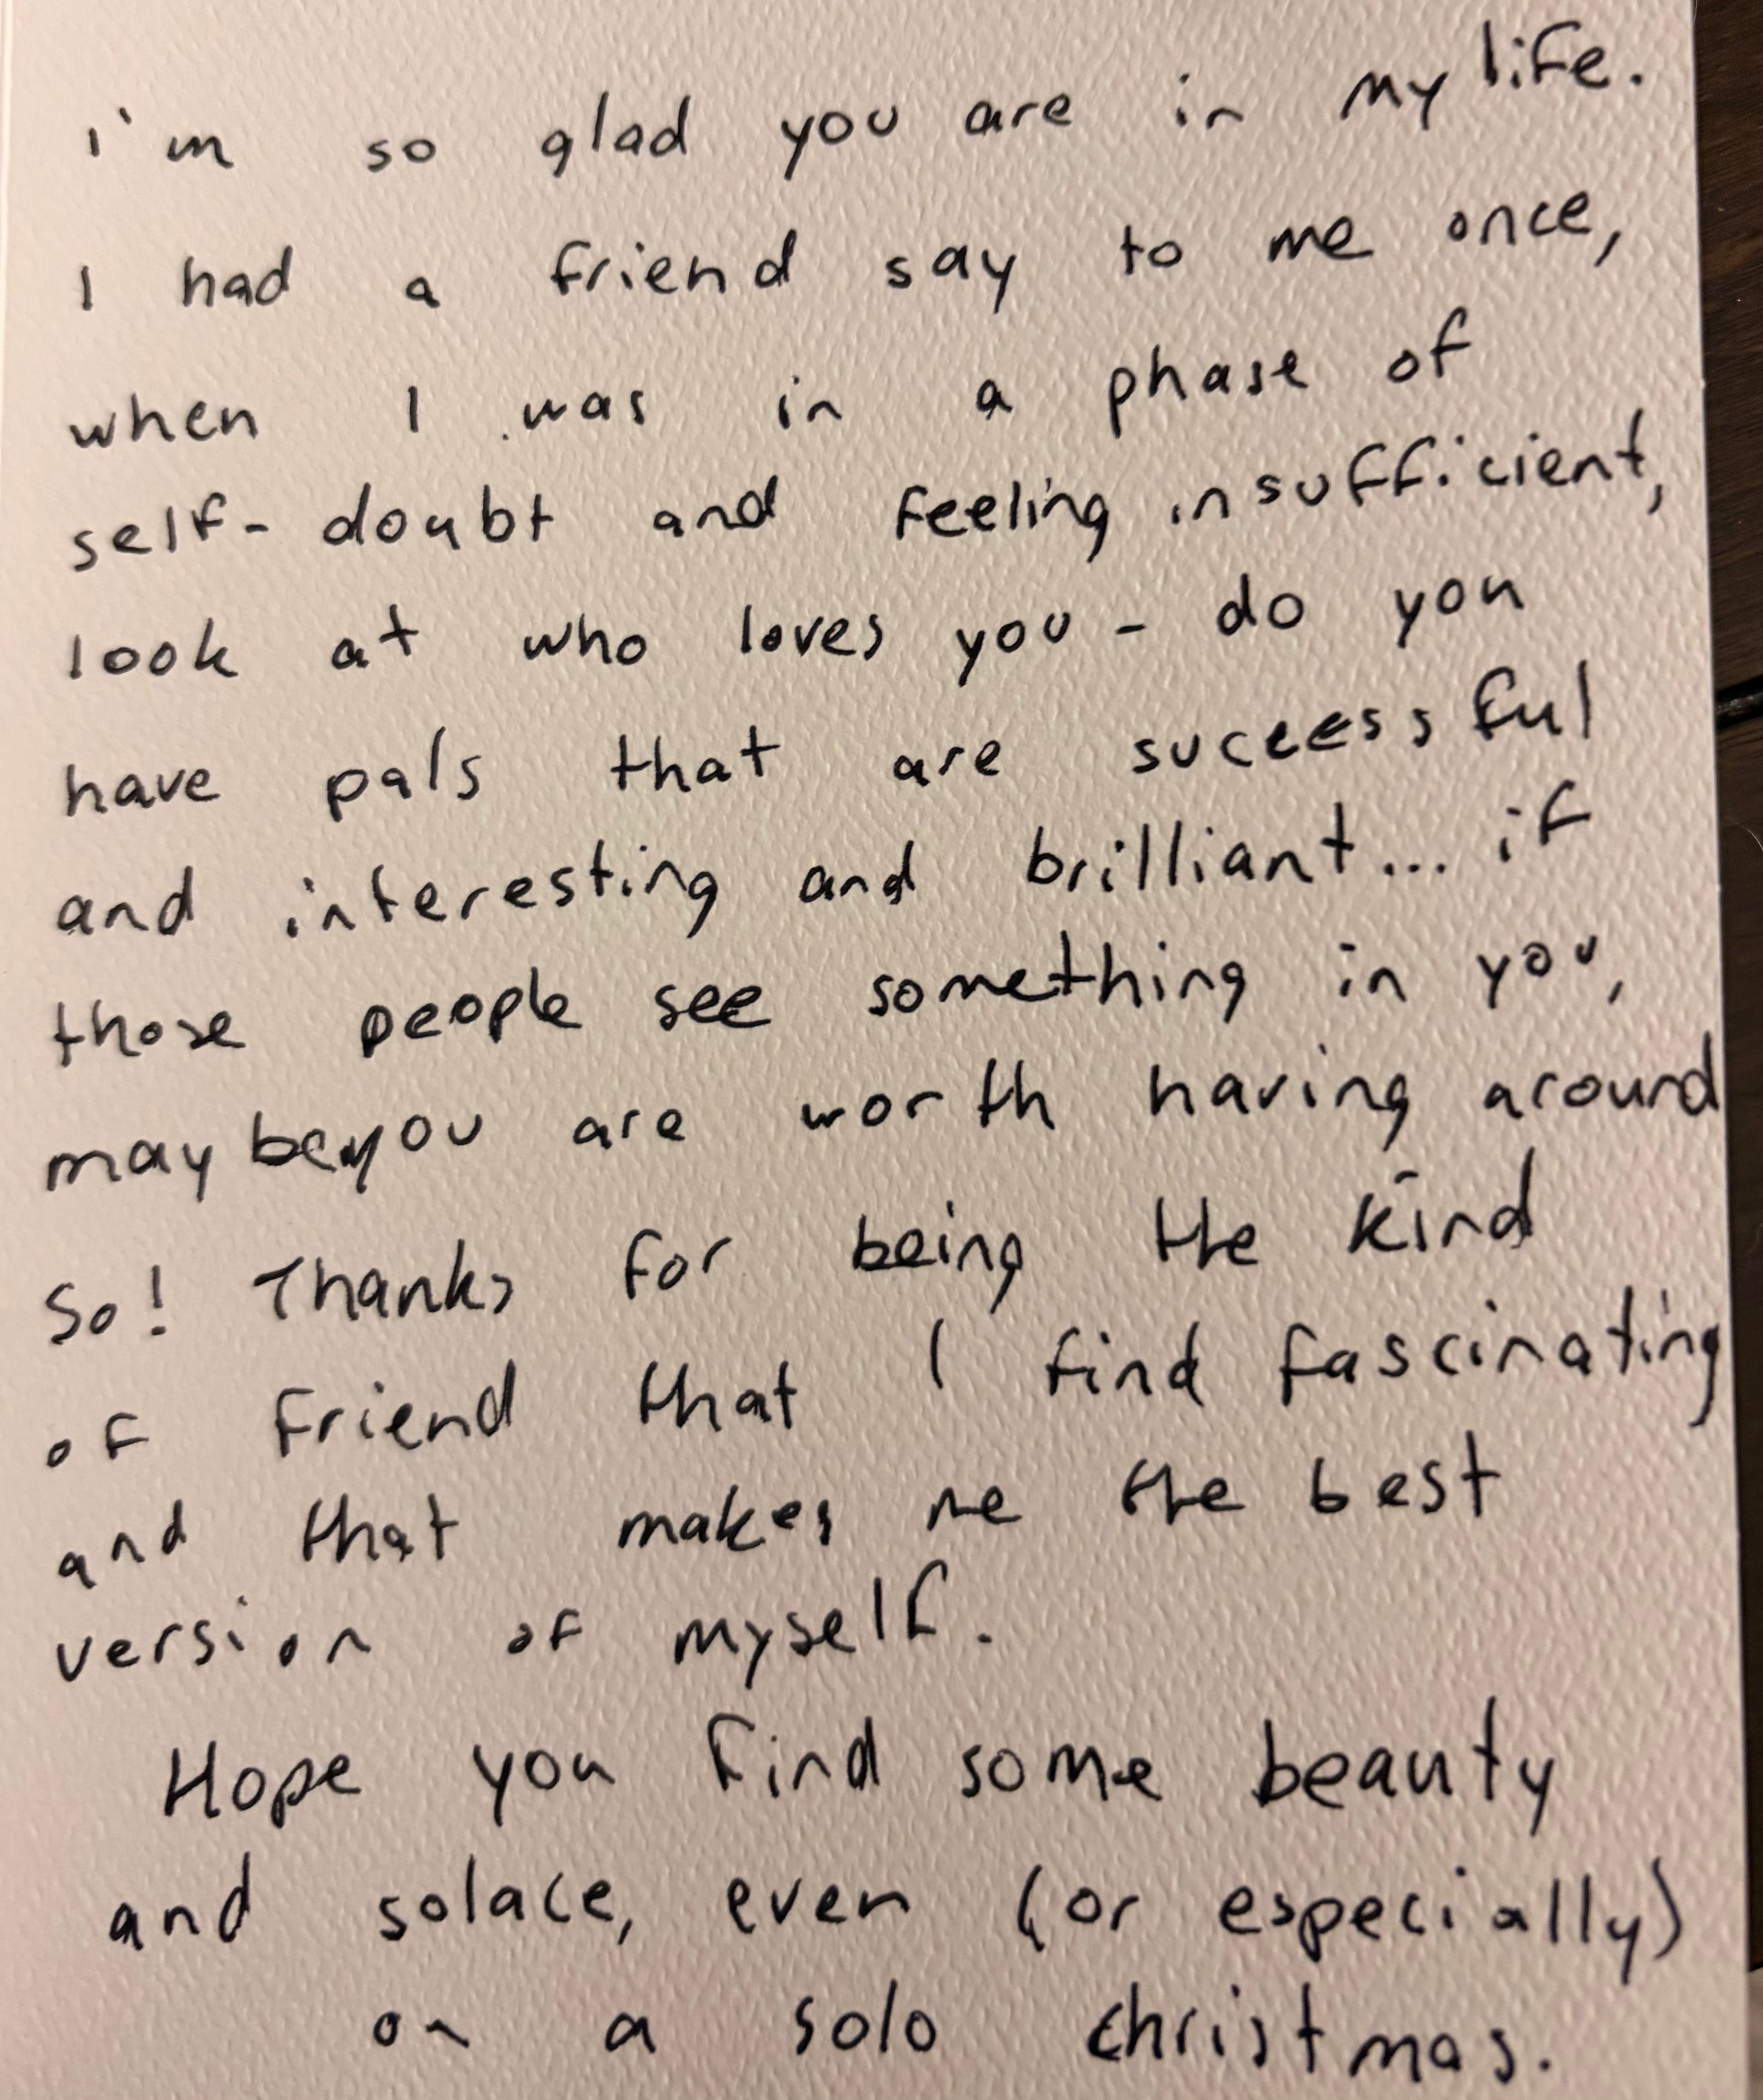 i'm so glad you are in my life.
I had a friend say to me once,
when I was in a phase of
self-doubt and feeling insufficient,
look at who loves you - do you
have pals that are successful
and interesting and brilliant... if
those people see something in you,
maybe you are worth having around
So! Thanks for being the kind
of friend that I find fascinating
and that makes me the best
version of myself.
Hope you find some beauty
and solace, even (or especially)
on a solo christmas.